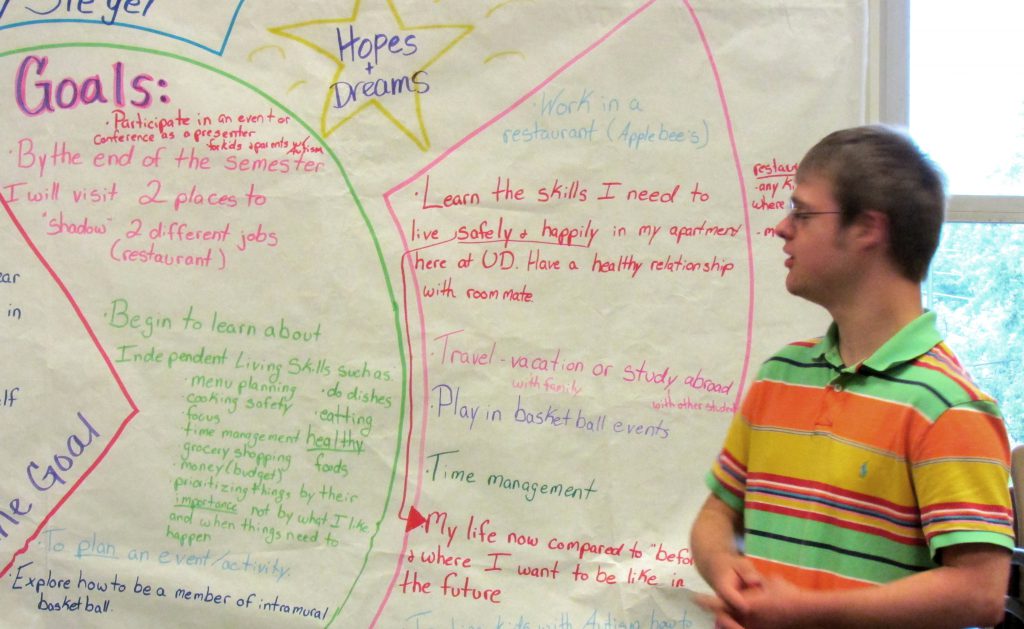 Hopes
+
Dreams
Goals:
· Participate in an event or
conference as a presenter
for kids & parents w/ Autism
· By the end of the semester
I will visit 2 places to
"shadow" 2 different jobs
(restaurant)
· Begin to learn about
Independent Living Skills such as:
· menu planning · do dishes
· cooking safety · eatting
· focus healthy
· time management foods
grocery shopping
· money (budget)
· prioritizing things by their
importance not by what I like,
and when things need to
happen
· To plan an event/activity.
· Explore how to be a member of intramural
basketball.
in
Goal
· Work in a
restaurant (Applebee's)
· Learn the skills I need to
live safely & happily in my apartment
here at UD. Have a healthy relationship
with room mate.
· Travel - vacation or study abroad
with family with other student
· Play in basketball events
· Time management
· My life now compared to "befo
& where I want to be like in
the future
kids with Autism how to
· any
where